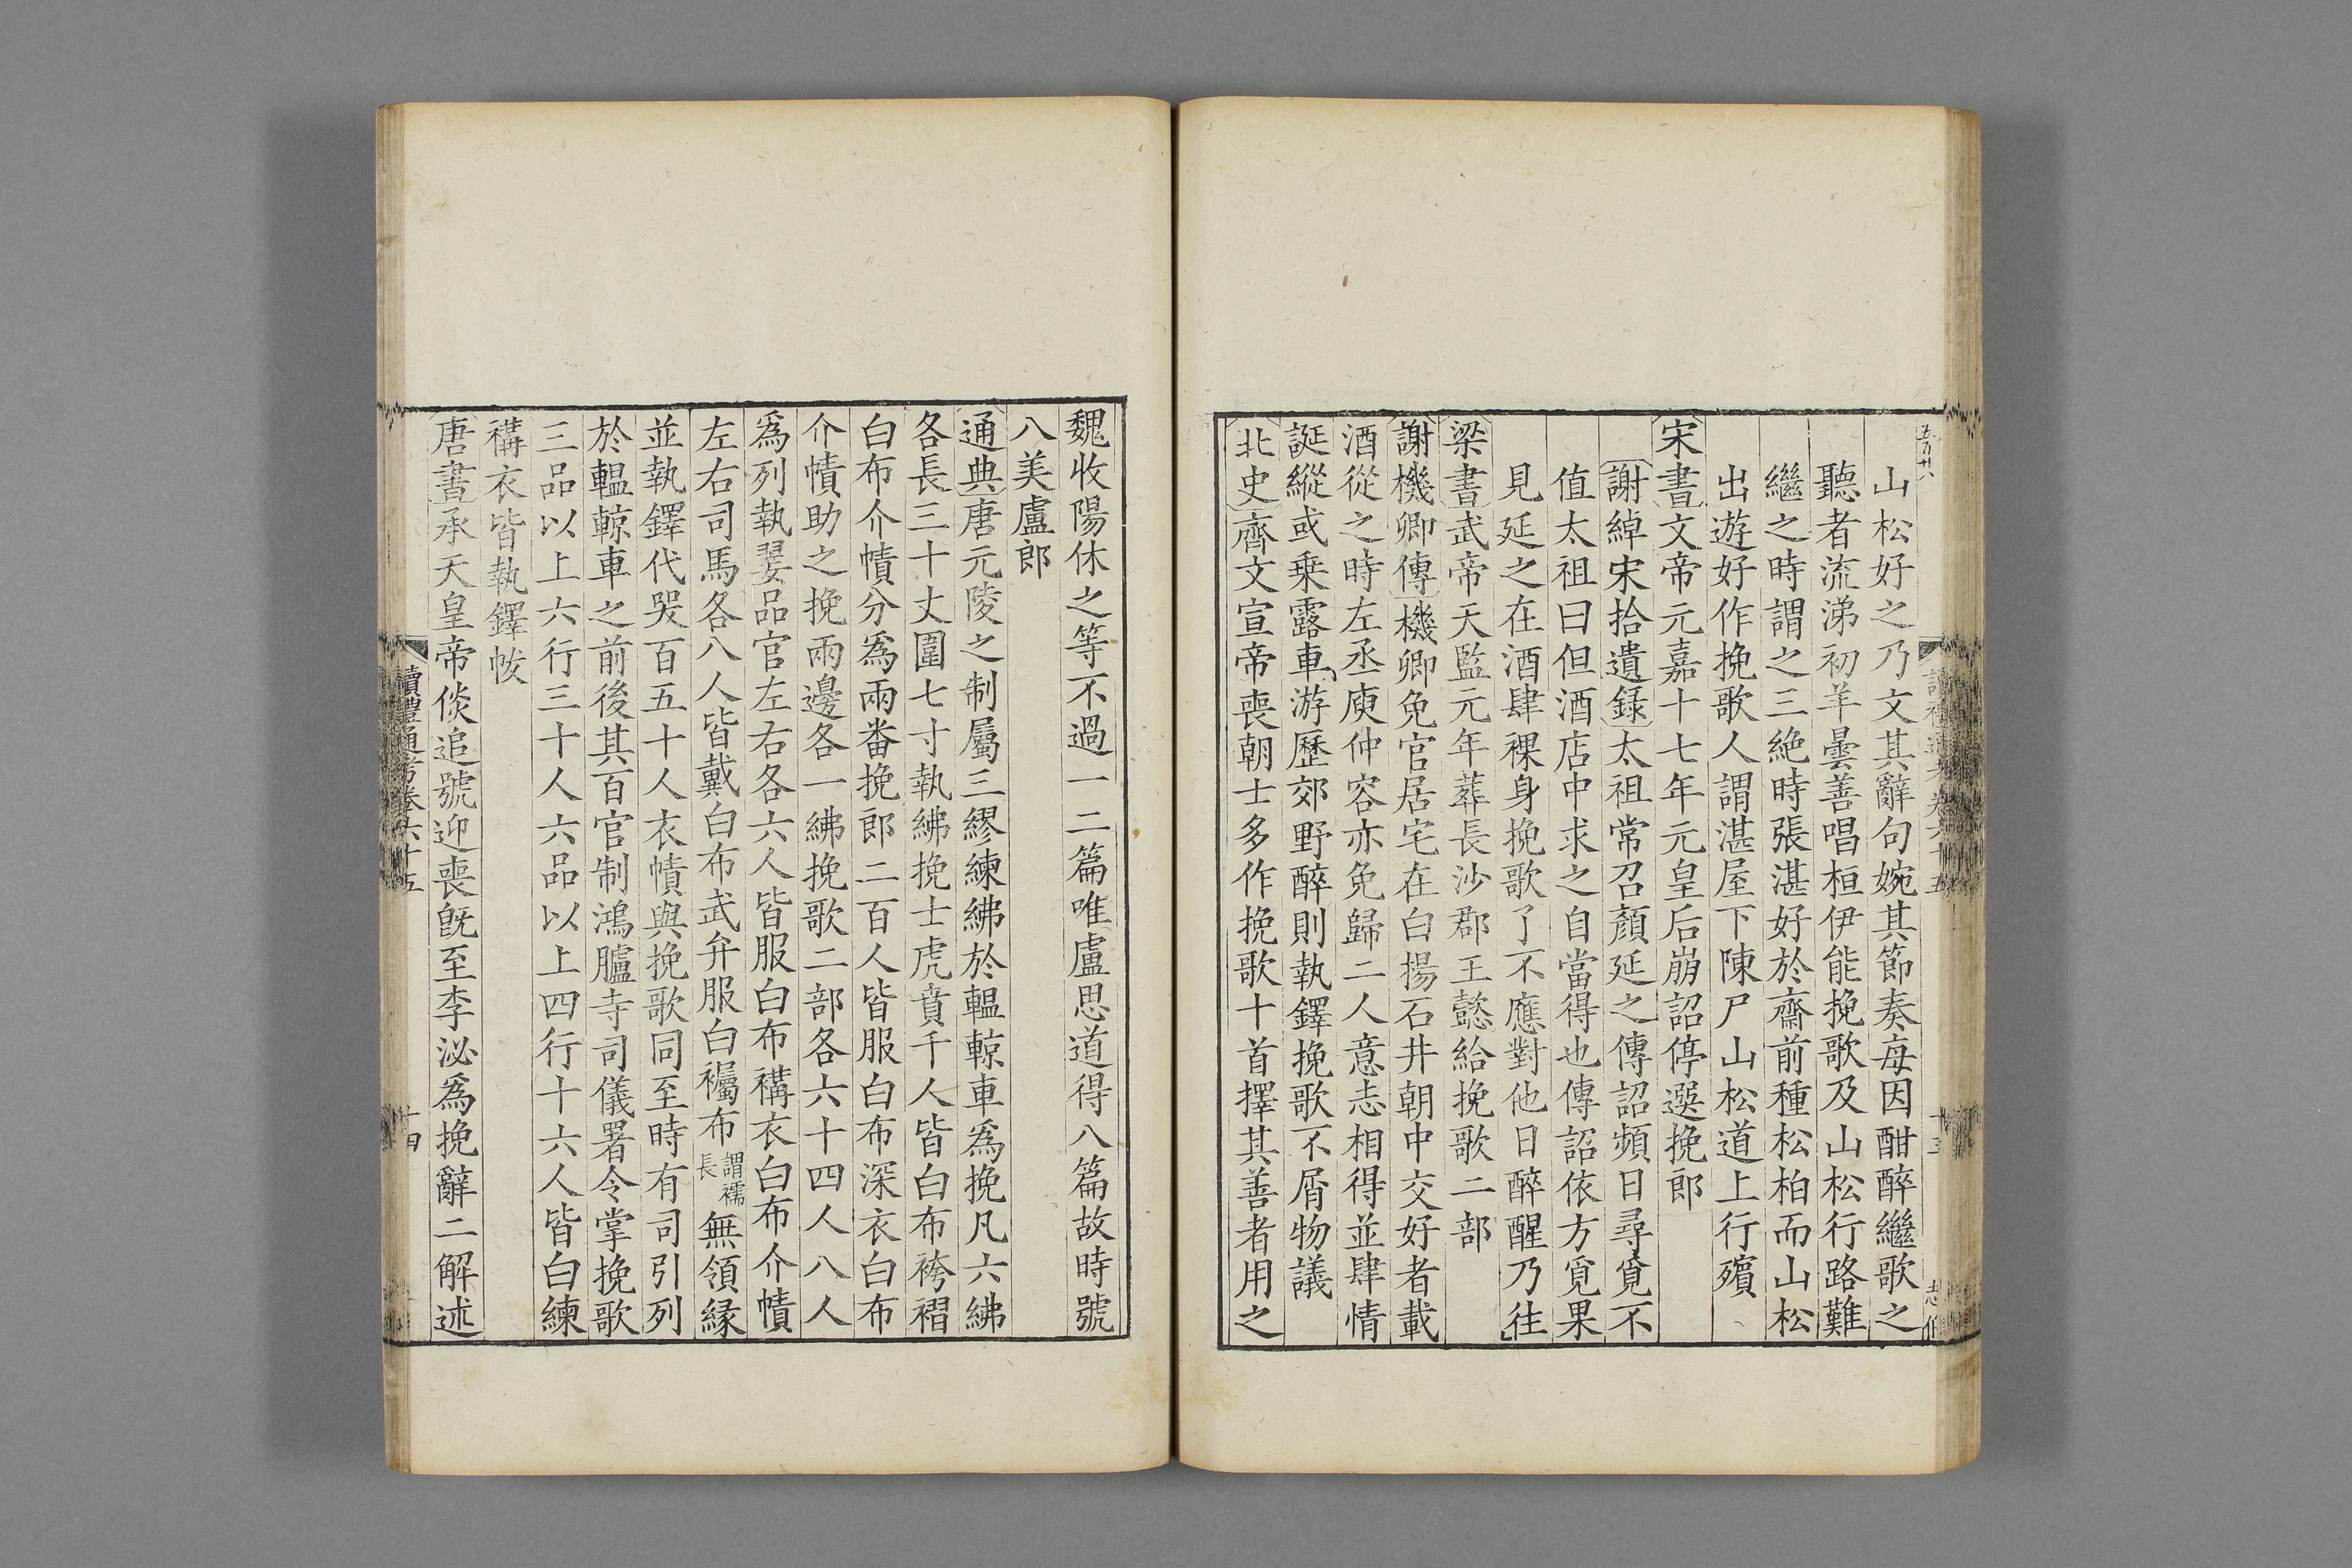 山松好之乃文其辭句婉其節奏每因酣醉繼歌之
聽者流涕初羊曇善唱桓伊能挽歌及山松行路難
繼之時謂之三絶時張湛好於齋前種松柏而山松
出遊好作挽歌人謂湛屋下陳尸山松道上行殯
宋書文帝元嘉十七年元皇后崩詔停選挽郎
謝綽宋拾遺録太祖常召顏延之傳詔頻日尋覓不
值太祖曰但酒店中求之自當得也傳詔依方覓果
見延之在酒肆裸身挽歌了不應對他日醉醒乃往
梁書武帝天監元年葬長沙郡王懿給挽歌二部
謝機卿傳機卿免官居宅在白揚石井朝中交好者載
酒從之時左丞庾仲容亦免歸二人意志相得並肆情
誕縱或乗露車游歷郊野醉則執鐸挽歌不屑物議
北史齊文宣帝喪朝士多作挽歌十首擇其善者用之
魏收陽休之等不過一二篇唯盧思道得八篇故時號
八美盧郎
通典唐元陵之制屬三繆練紼於轀輬車爲挽凡六紼
各長三十丈圍七寸執紼挽士虎賁千人皆白布袴褶
白布介幘分爲兩番挽郎二百人皆服白布深衣白布
介幘助之挽兩邊各一紼挽歌二部各六十四人八人
爲列執翣品官左右各六人皆服白布褠衣白布介幘
左右司馬各八人皆戴白布武弁服白襡布謂襦長無領縁
並執鐸代哭百五十人衣幘與挽歌同至時有司引列
於轀輬車之前後其百官制鴻臚寺司儀署令掌挽歌
三品以上六行三十人六品以上四行十六人皆白練
褠衣皆執鐸帗
唐書承天皇帝倓追號迎喪旣至李泌爲挽辭二解述
讀禮通考卷六十五